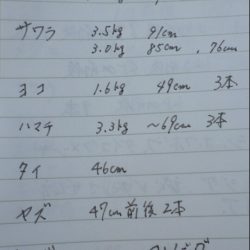 サワラ 3.5kg 91cm
3.0kg 85cm , 76cm
ヨコ 1.6kg 49cm 3本
ハマチ 3.3kg ~69cm 3本
タイ 46cm
ヤズ 47cm前後 2本